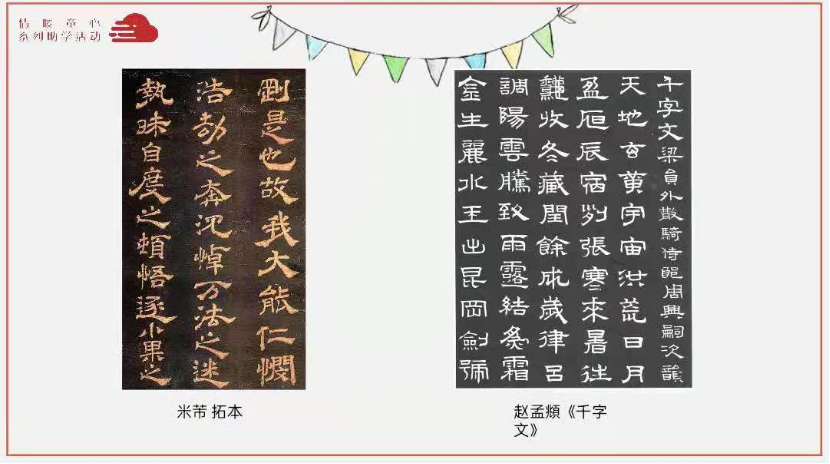 情暖童心
系列助学活动
劃是也故我大能仁憫
浩劫之奔沉悼万法之迷
執昧自度之頓悟逐小果之
千字文梁員外散騎侍郎周興嗣次韻
天地玄黃宇宙洪荒日月
盈昃辰宿列張寒來暑往
秋收冬藏閏餘成歲律呂
調陽雲騰致雨露結為霜
金生麗水玉出崑岡劍號
米芾 拓本
赵孟頫《千字
文》